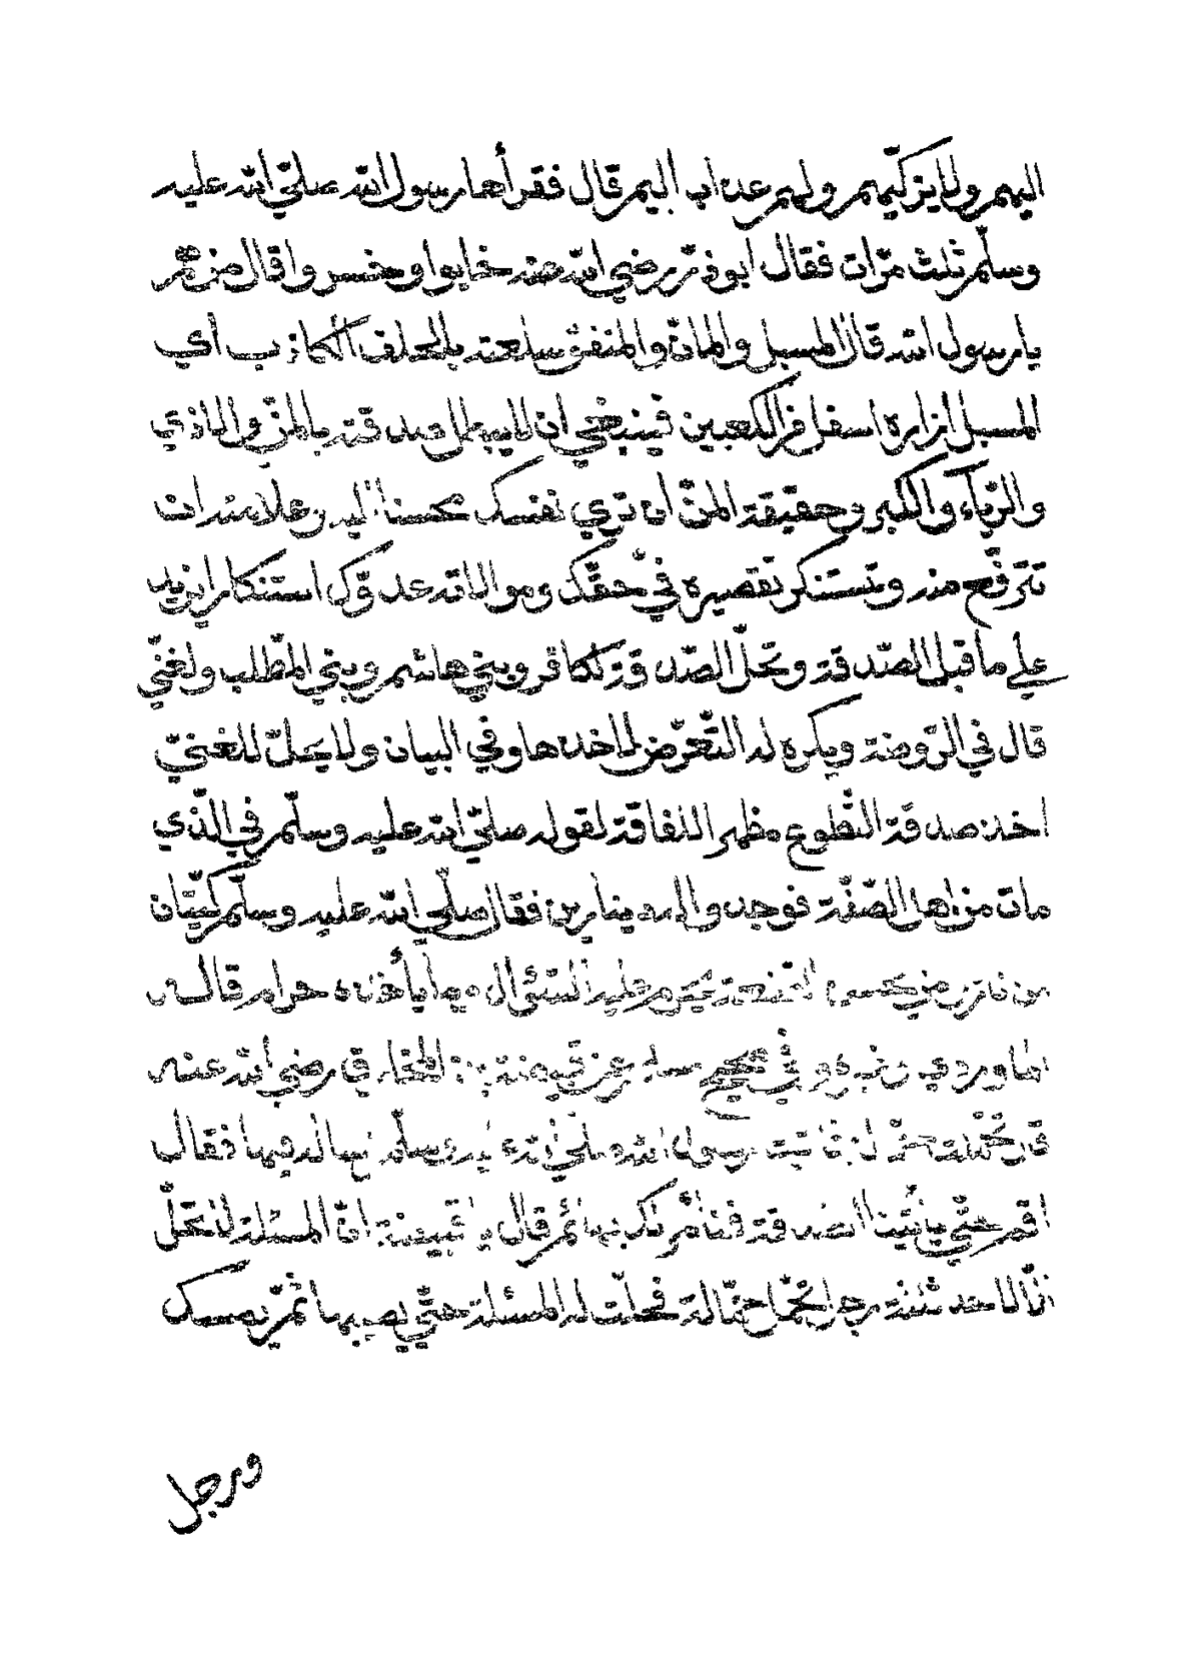 اليهم ولا يزكيهم ولهم عذاب اليم قال فقرأها رسول الله صلى الله عليه
وسلم ثلث مرّات فقال ابوذرّ رضي الله عنه خابوا وخسروا قال من هم
يا رسول الله قال المسبل والمانّ والمنفق سلعته بالحلف الكاذب أي
المسبل ازاره اسفل من الكعبين فينبغي ان لا يبطل صدقته بالمنّ والاذي
والريآء والكبر وحقيقة المنّ ان تري نفسك محسنا اليه وعلامته ان
تترفّع منه وتستنكر تقصيره في حقّك وموالاته عدوّك استنكارا يزيد
علي ما قبل الصّدقة وتحلّ الصّدقة لكافر وبني هاشم وبني المطّلب ولغنيّ
قال في الرّوضة ويكره له التّعرّض لاخذها وفي البيان ولا يحلّ للغنيّ
اخذ صدقة التّطوع مظهرا للفاقة لقوله صلّي الله عليه وسلّم في الّذي
مات من اهل الصّفّة فوجد واله دينارين فقال صلّي الله عليه وسلّم كيّتان
من نار السّؤال وما يأخذه حرام قاله
الماوردي وغيره وفي صحيح مسلم عن قبيصة بن المخارق رضي الله عنه
قال تحمّلت حمالة فاتيت رسول الله صلي الله عليه وسلّم اساله فيها فقال
اقم حتّي تأتينا الصّدقة فنأمر لك بها ثم قال يا قبيصة انّ المسئلة لا تحلّ
الّا لاحد ثلثة رجل تحمّل حمّالة فحلّت له المسئلة حتّي يصيبها ثمّ يمسك
ورجل